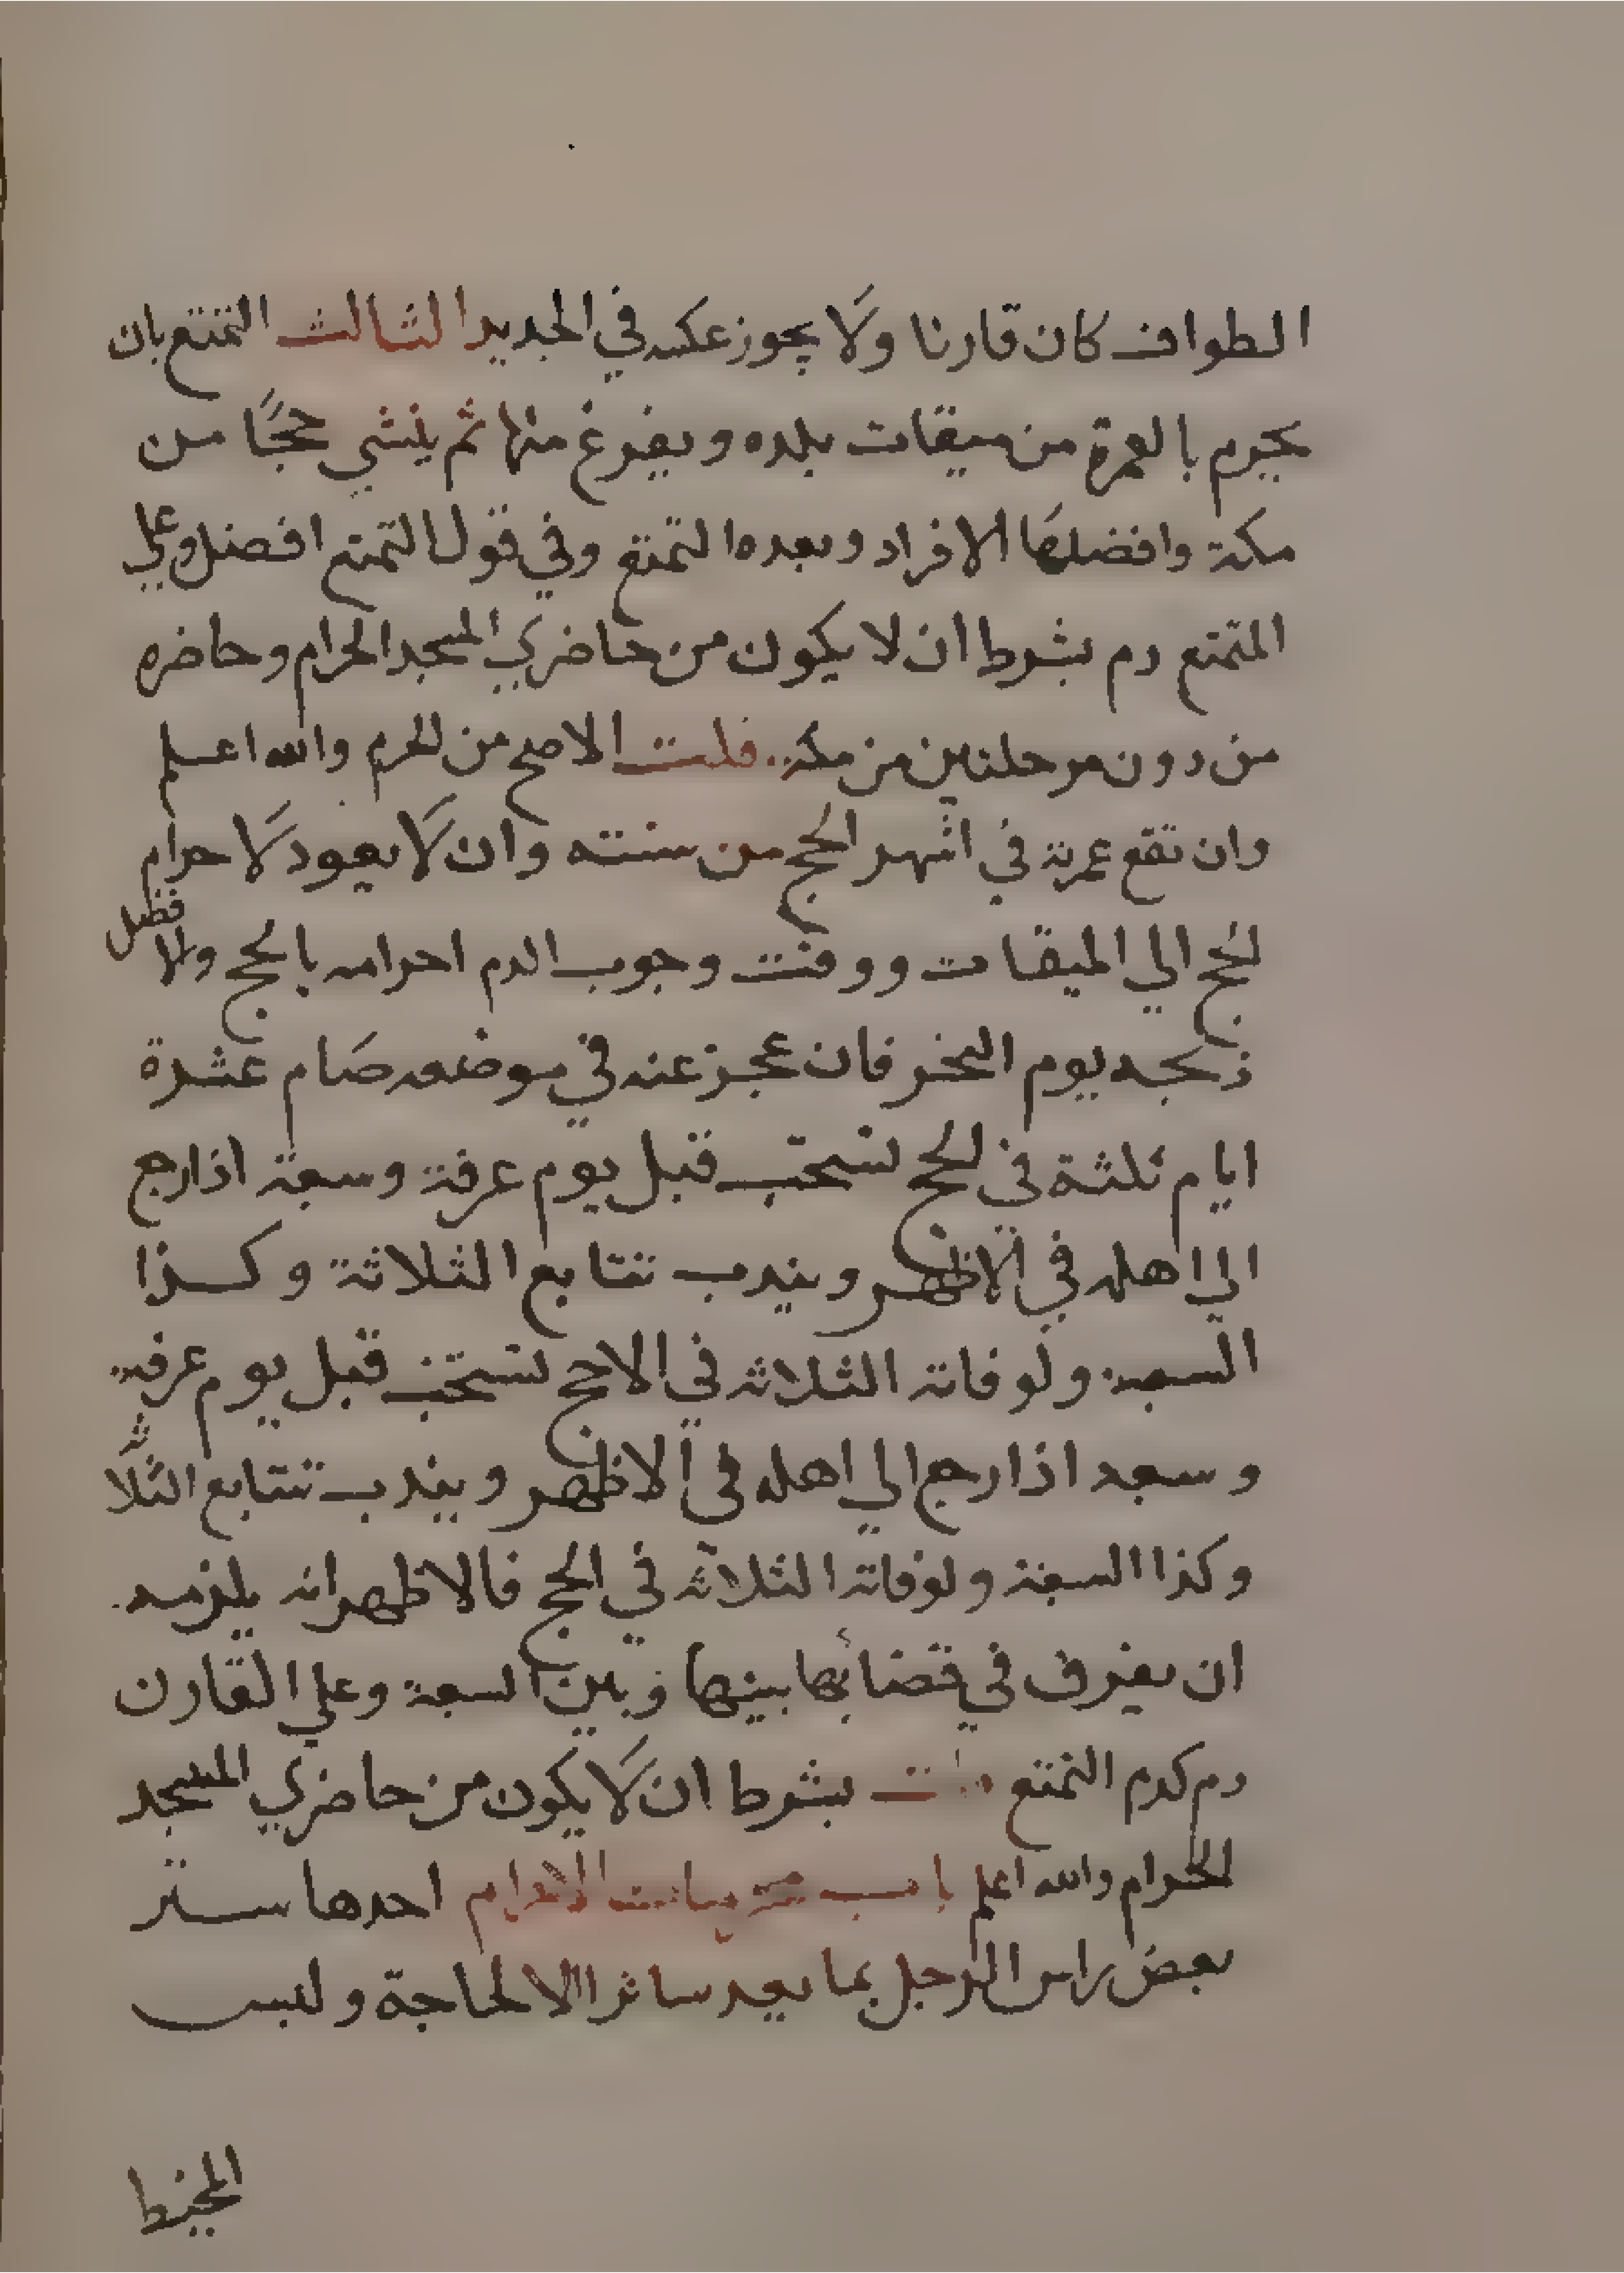 الطواف كان قارنا ولا يجوز عكسه في الجديد الثالث التمتع بان
يحرم بالعمرة من ميقات بلده ويفرغ منها ثم ينشي حجًا من
مكة وافضلها الافراد وبعده التمتع وفي قول التمتع افضل وعلي
المتمتع دم بشرط ان لا يكون من حاضري المسجد الحرام وحاضره
من دون مرحلتين من مكة قلت الاصح من الحرم والله اعلم
وان تقع عمرته في اشهر الحج من سنته وان لا يعود لاحرام
الحج الي الميقات ووقت وجوب الدم احرامه بالحج والافضل
ذبحه يوم النحر فان عجز عنه في موضعه صام عشرة
ايام ثلثة في الحج تستحب قبل يوم عرفة وسبعة اذا رجع
الي اهله في الاظهر ويندب تتابع الثلاثة وكذا
السبعة ولو فاته الثلاثه في الاحج تستحب قبل يوم عرفة
وسبعه اذا رجع الي اهله في الاظهر ويندب تتابع الثلاثة
وكذا السبعة ولو فاته الثلاثه في الحج فالاظهر انه يلزمه
ان يفرق في قضائها بينها وبين السبعة وعلي القارن
دم كدم التمتع قلت بشرط ان لا يكون من حاضري المسجد
الحرام والله اعلم باب محرمات الاحرام احدها ستر
بعض راس الرجل بما يعد ساترا الا لحاجة ولبس
المخيط